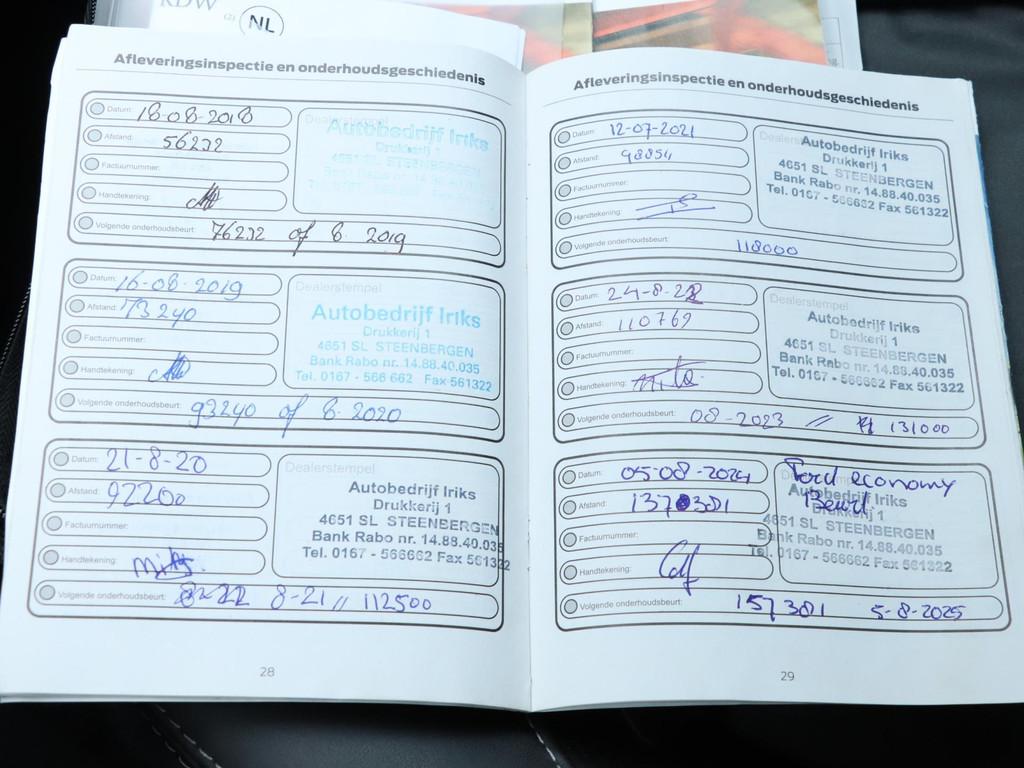 RDW
(2) NL
Afleveringsinspectie en onderhoudsgeschiedenis
Datum: 18-08-2018
Afstand: 56232
Factuurnummer:
Handtekening:
Volgende onderhoudsbeurt: 76232 of 8. 2019
Dealerstempel
Autobedrijf Iriks
Drukkerij 1
4651 SL STEENBERGEN
Bank Rabo nr. 14.88.40.035
Datum: 16-08-2019
Afstand: 73240
Factuurnummer:
Handtekening:
Volgende onderhoudsbeurt: 93240 of 8. 2020
Dealerstempel
Autobedrijf Iriks
Drukkerij 1
4651 SL STEENBERGEN
Bank Rabo nr. 14.88.40.035
Tel. 0167 - 566 662 Fax 561322
Datum: 21-8-20
Afstand: 92200
Factuurnummer:
Handtekening:
Volgende onderhoudsbeurt: 8-21 // 112500
Dealerstempel
Autobedrijf Iriks
Drukkerij 1
4651 SL STEENBERGEN
Bank Rabo nr. 14.88.40.035
Tel. 0167 - 566662 Fax 561322
28
Afleveringsinspectie en onderhoudsgeschiedenis
Datum: 12-07-2021
Afstand: 98854
Factuurnummer:
Handtekening:
Volgende onderhoudsbeurt: 118000
Autobedrijf Iriks
Drukkerij 1
4651 SL STEENBERGEN
Bank Rabo nr. 14.88.40.035
Tel. 0167 - 566662 Fax 561322
Datum: 24-8-22
Afstand: 110769
Factuurnummer:
Handtekening:
Volgende onderhoudsbeurt: 08-2023 // 131000
Dealerstempel
Autobedrijf Iriks
Drukkerij 1
4651 SL STEENBERGEN
Bank Rabo nr. 14.88.40.035
Tel. 0167 - 566662 Fax 561322
Datum: 05-08-2024
Afstand: 137381
Factuurnummer:
Handtekening:
Volgende onderhoudsbeurt: 157381 5-8-2025
Ford economy
Beurt.
Autobedrijf Iriks
Drukkerij 1
4651 SL STEENBERGEN
Bank Rabo nr. 14.88.40.035
Tel. 0167 - 566662 Fax 561322
29